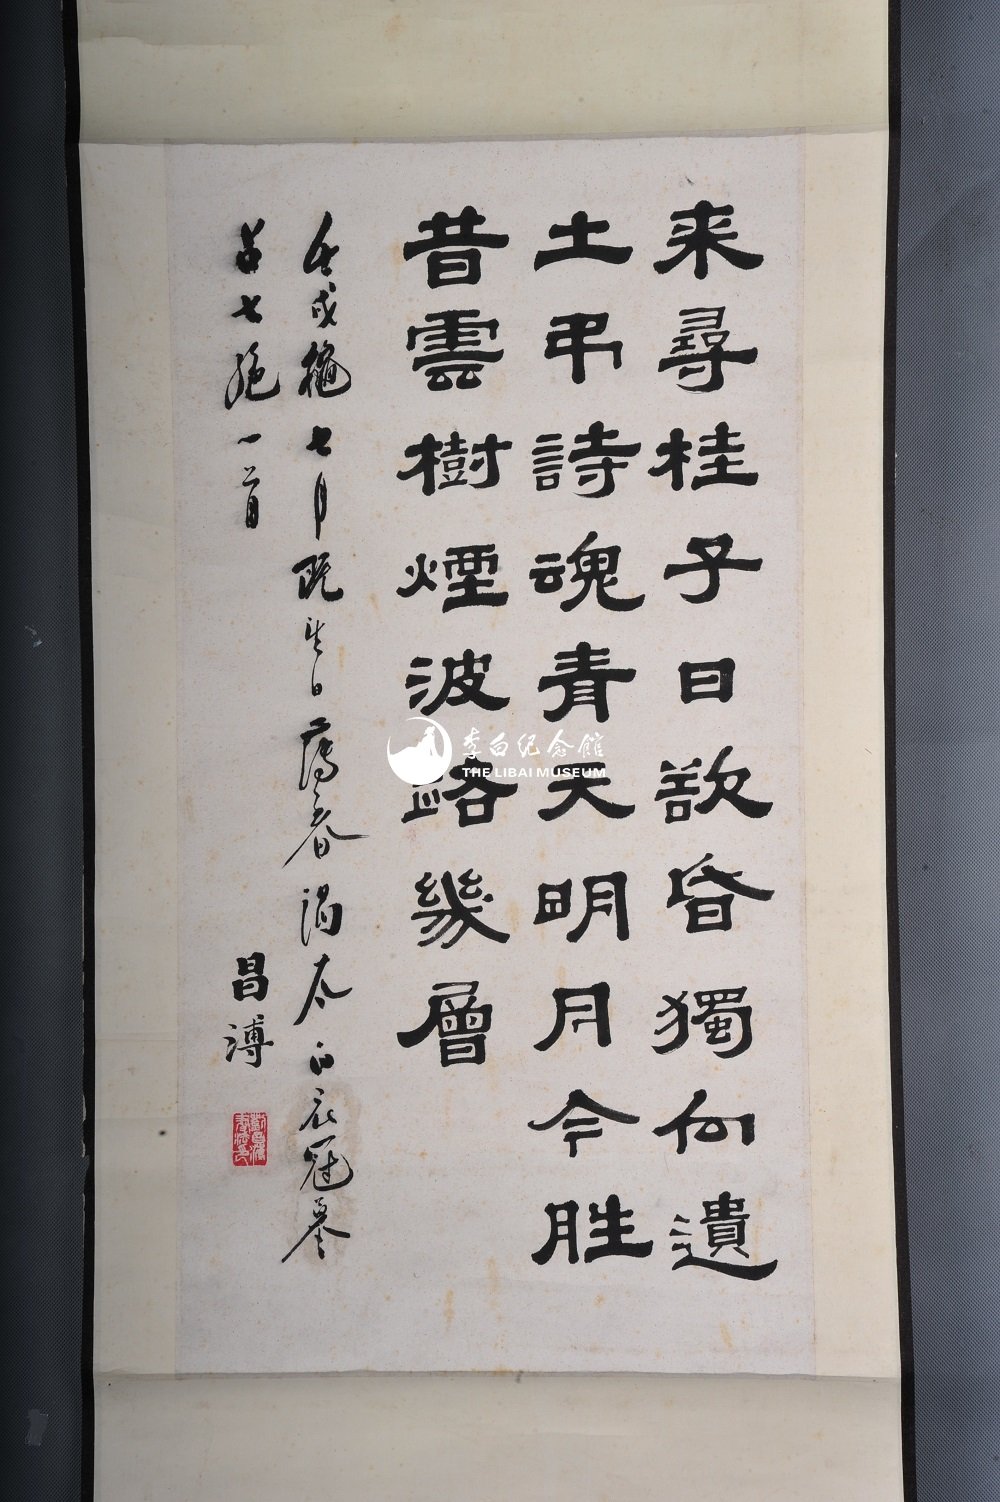 来尋桂子日欲昏獨向遺
土弔詩魂青天明月今胜
昔雲樹煙波路幾層
壬戌龝七月既望日薄暮謁太白衣冠墓
占七絕一首
昌溥
李白纪念館
THE LIBAI MUSEUM